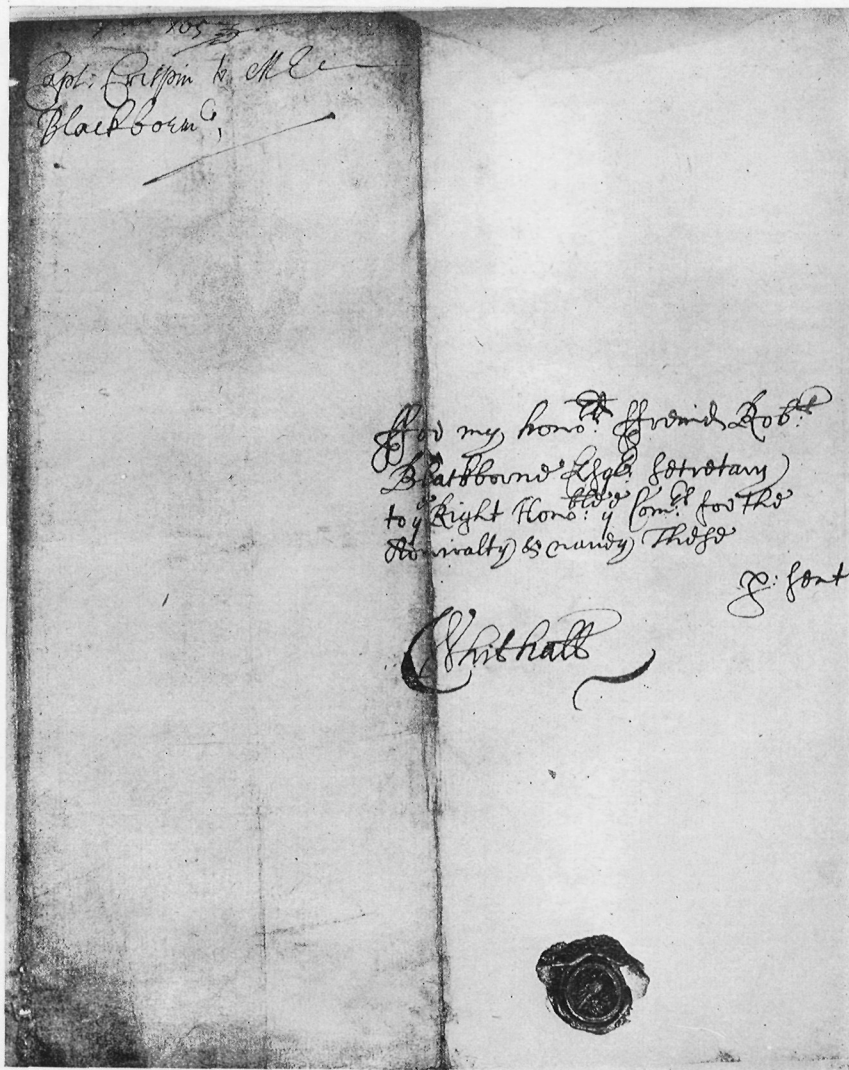 Capt: Crispin to Mr
Blackborne,
ffor my hono:rd ffreind Rob:t
Blackborne Esqr. Secretary
to ye Right Hono:ble ye Com:rs for the
Admiralty & navey These
p: sent
Whithall